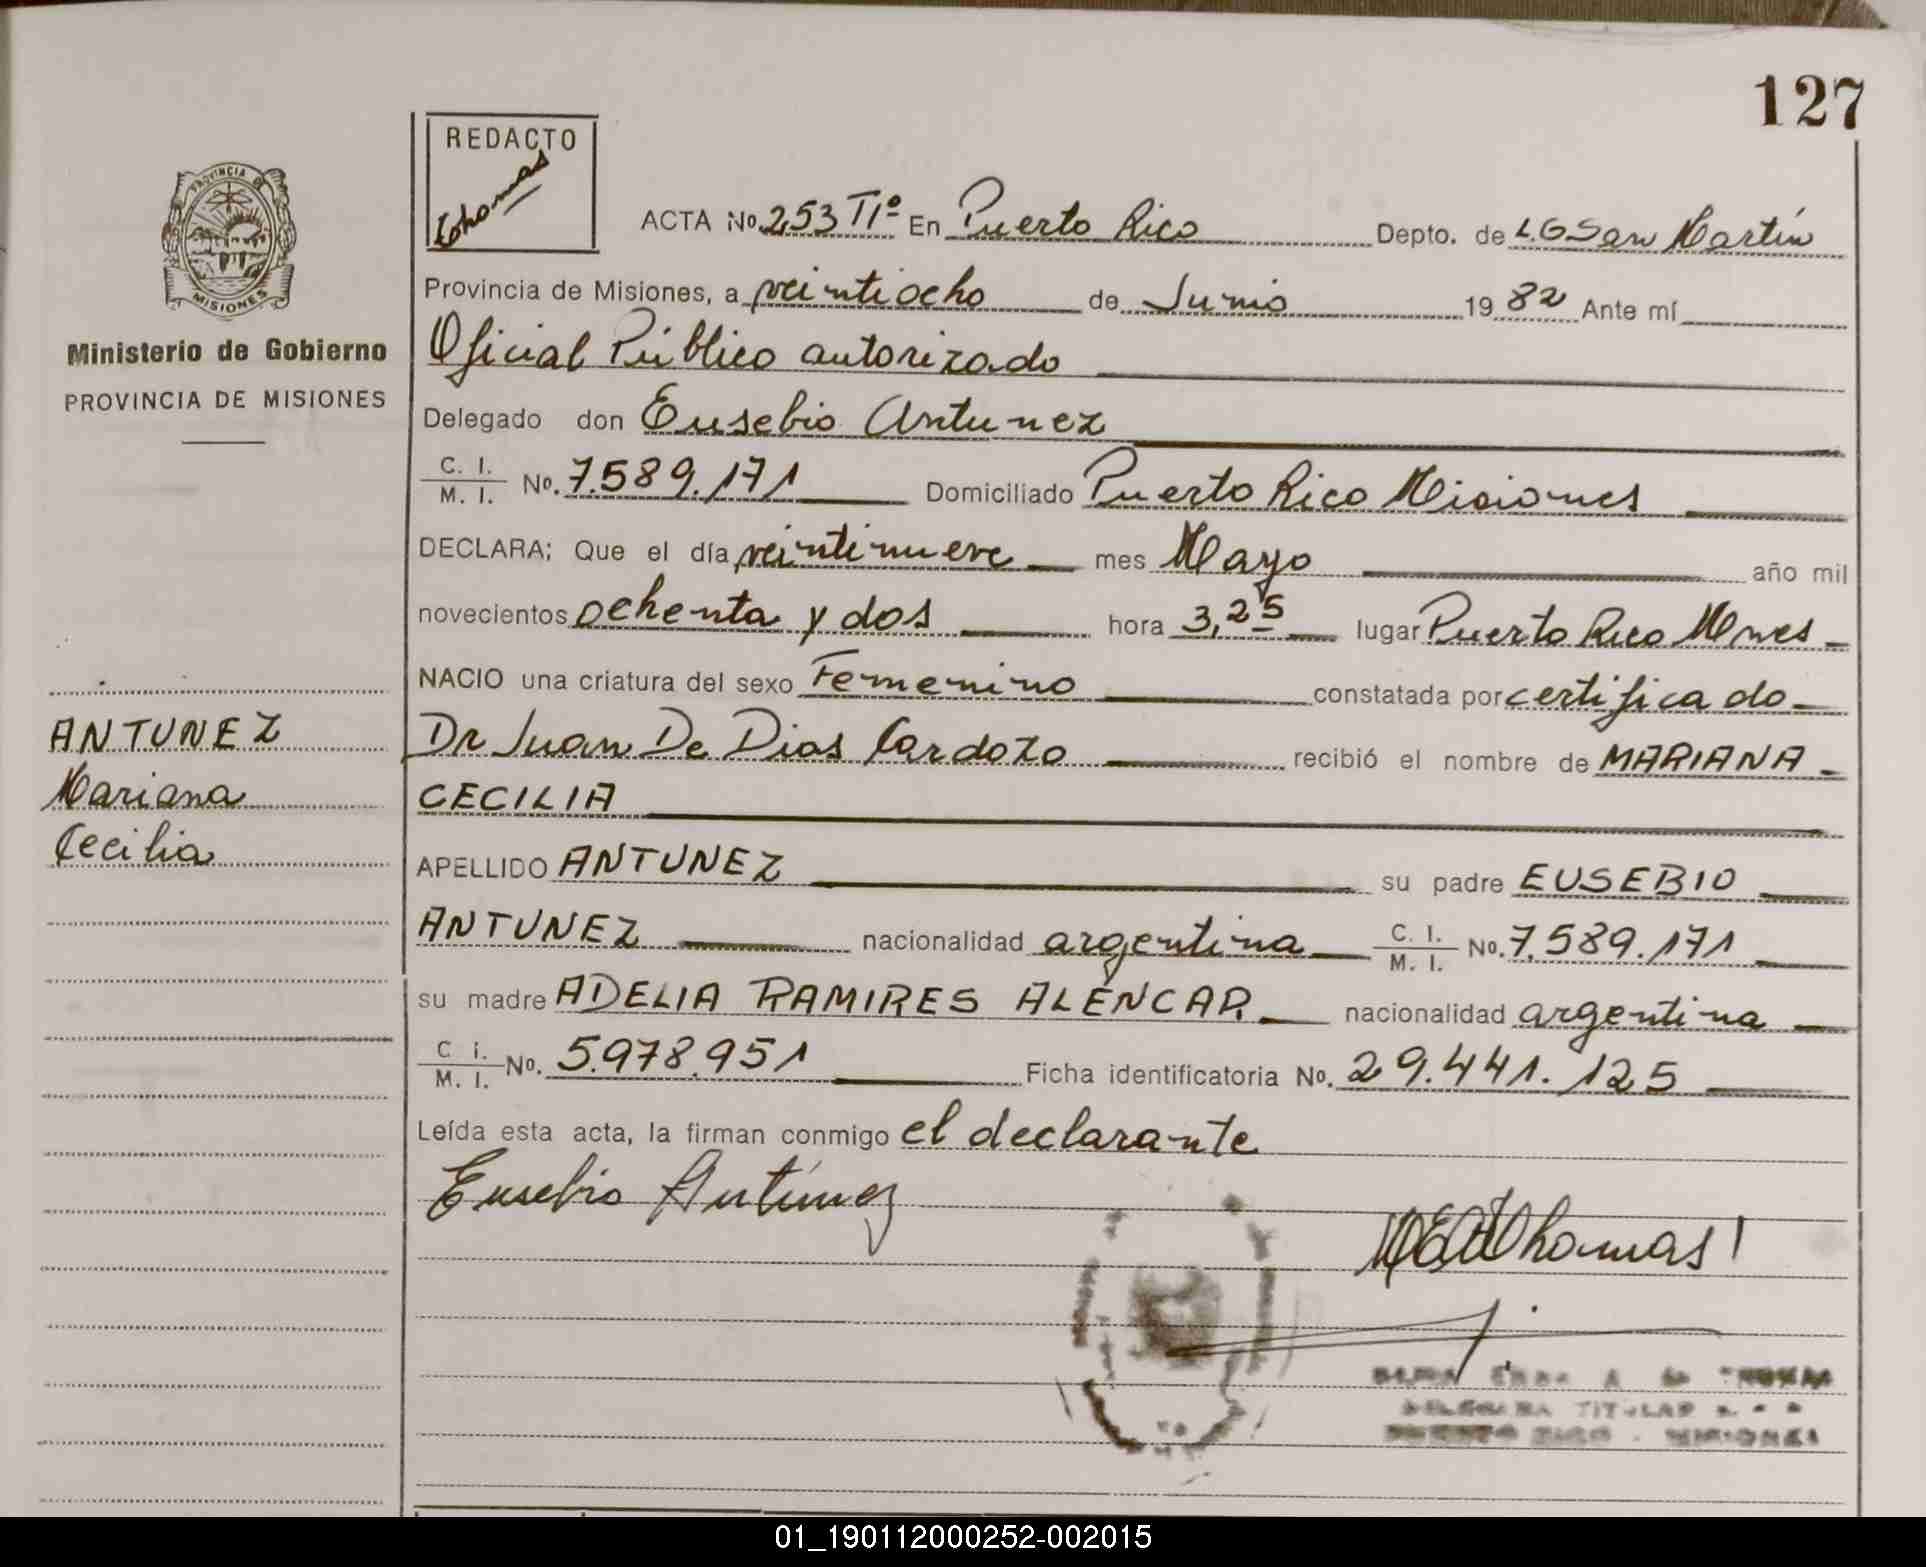 127
REDACTO
Thomas
ACTA No. 253 Tº Iº En Puerto Rico Depto. de L.G San Martín
Provincia de Misiones, a veintiocho de Junio 1982 Ante mí
Oficial Público autorizado
Delegado don Eusebio Antunez
C. I. / M. I. No. 7.589.171 Domiciliado Puerto Rico Misiones
DECLARA; Que el día veintinueve mes Mayo año mil
novecientos ochenta y dos hora 3,25 lugar Puerto Rico Mnes
NACIO una criatura del sexo Femenino constatada por certificado
Dr Juan De Dios Cardozo recibió el nombre de MARIANA
CECILIA
APELLIDO ANTUNEZ su padre EUSEBIO
ANTUNEZ nacionalidad argentina C. I. / M. I. No. 7.589.171
su madre ADELIA RAMIRES ALENCAR nacionalidad argentina
C i. / M. I. No. 5.978.951 Ficha identificatoria No. 29.441.125
Leída esta acta, la firman conmigo el declarante
Eusebio Antúnez
Thomas
DELEGADA TITULAR
PUERTO RICO - MISIONES
PROVINCIA DE
MISIONES
Ministerio de Gobierno
PROVINCIA DE MISIONES
ANTUNEZ
Mariana
Cecilia
01_190112000252-002015